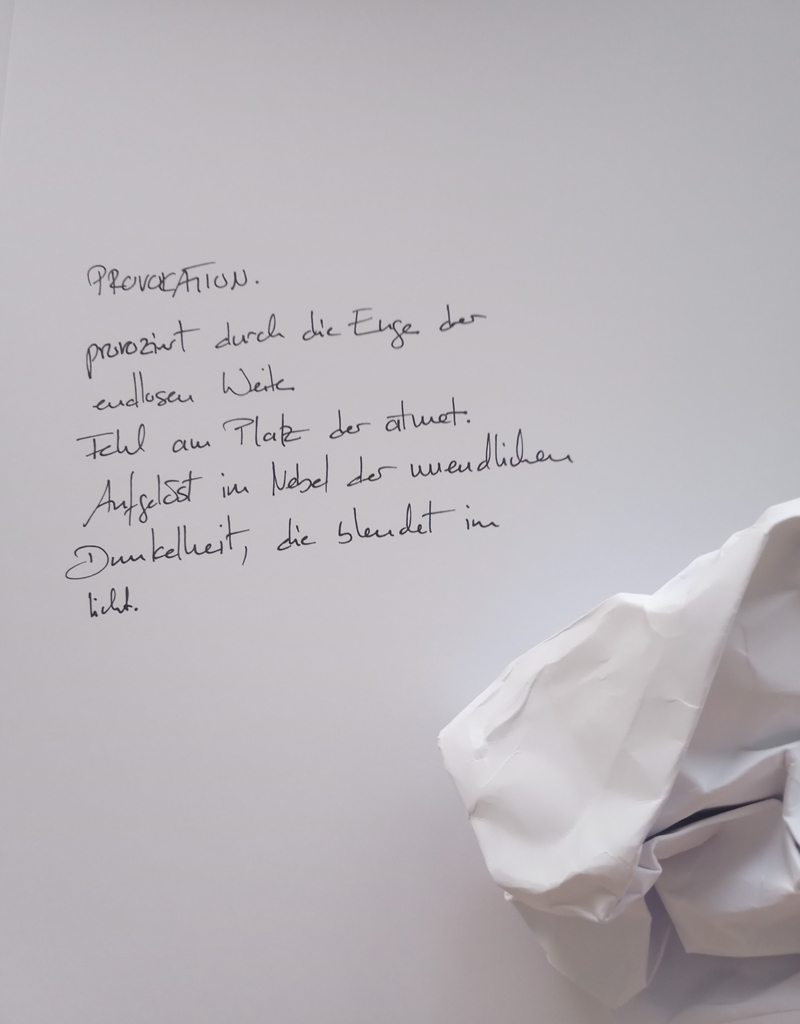 PROVOKATION.
provoziert durch die Enge der
endlosen Weite
Fehl am Platz der atmet.
Aufgelöst im Nebel der unendlichen
Dunkelheit, die blendet im
licht.